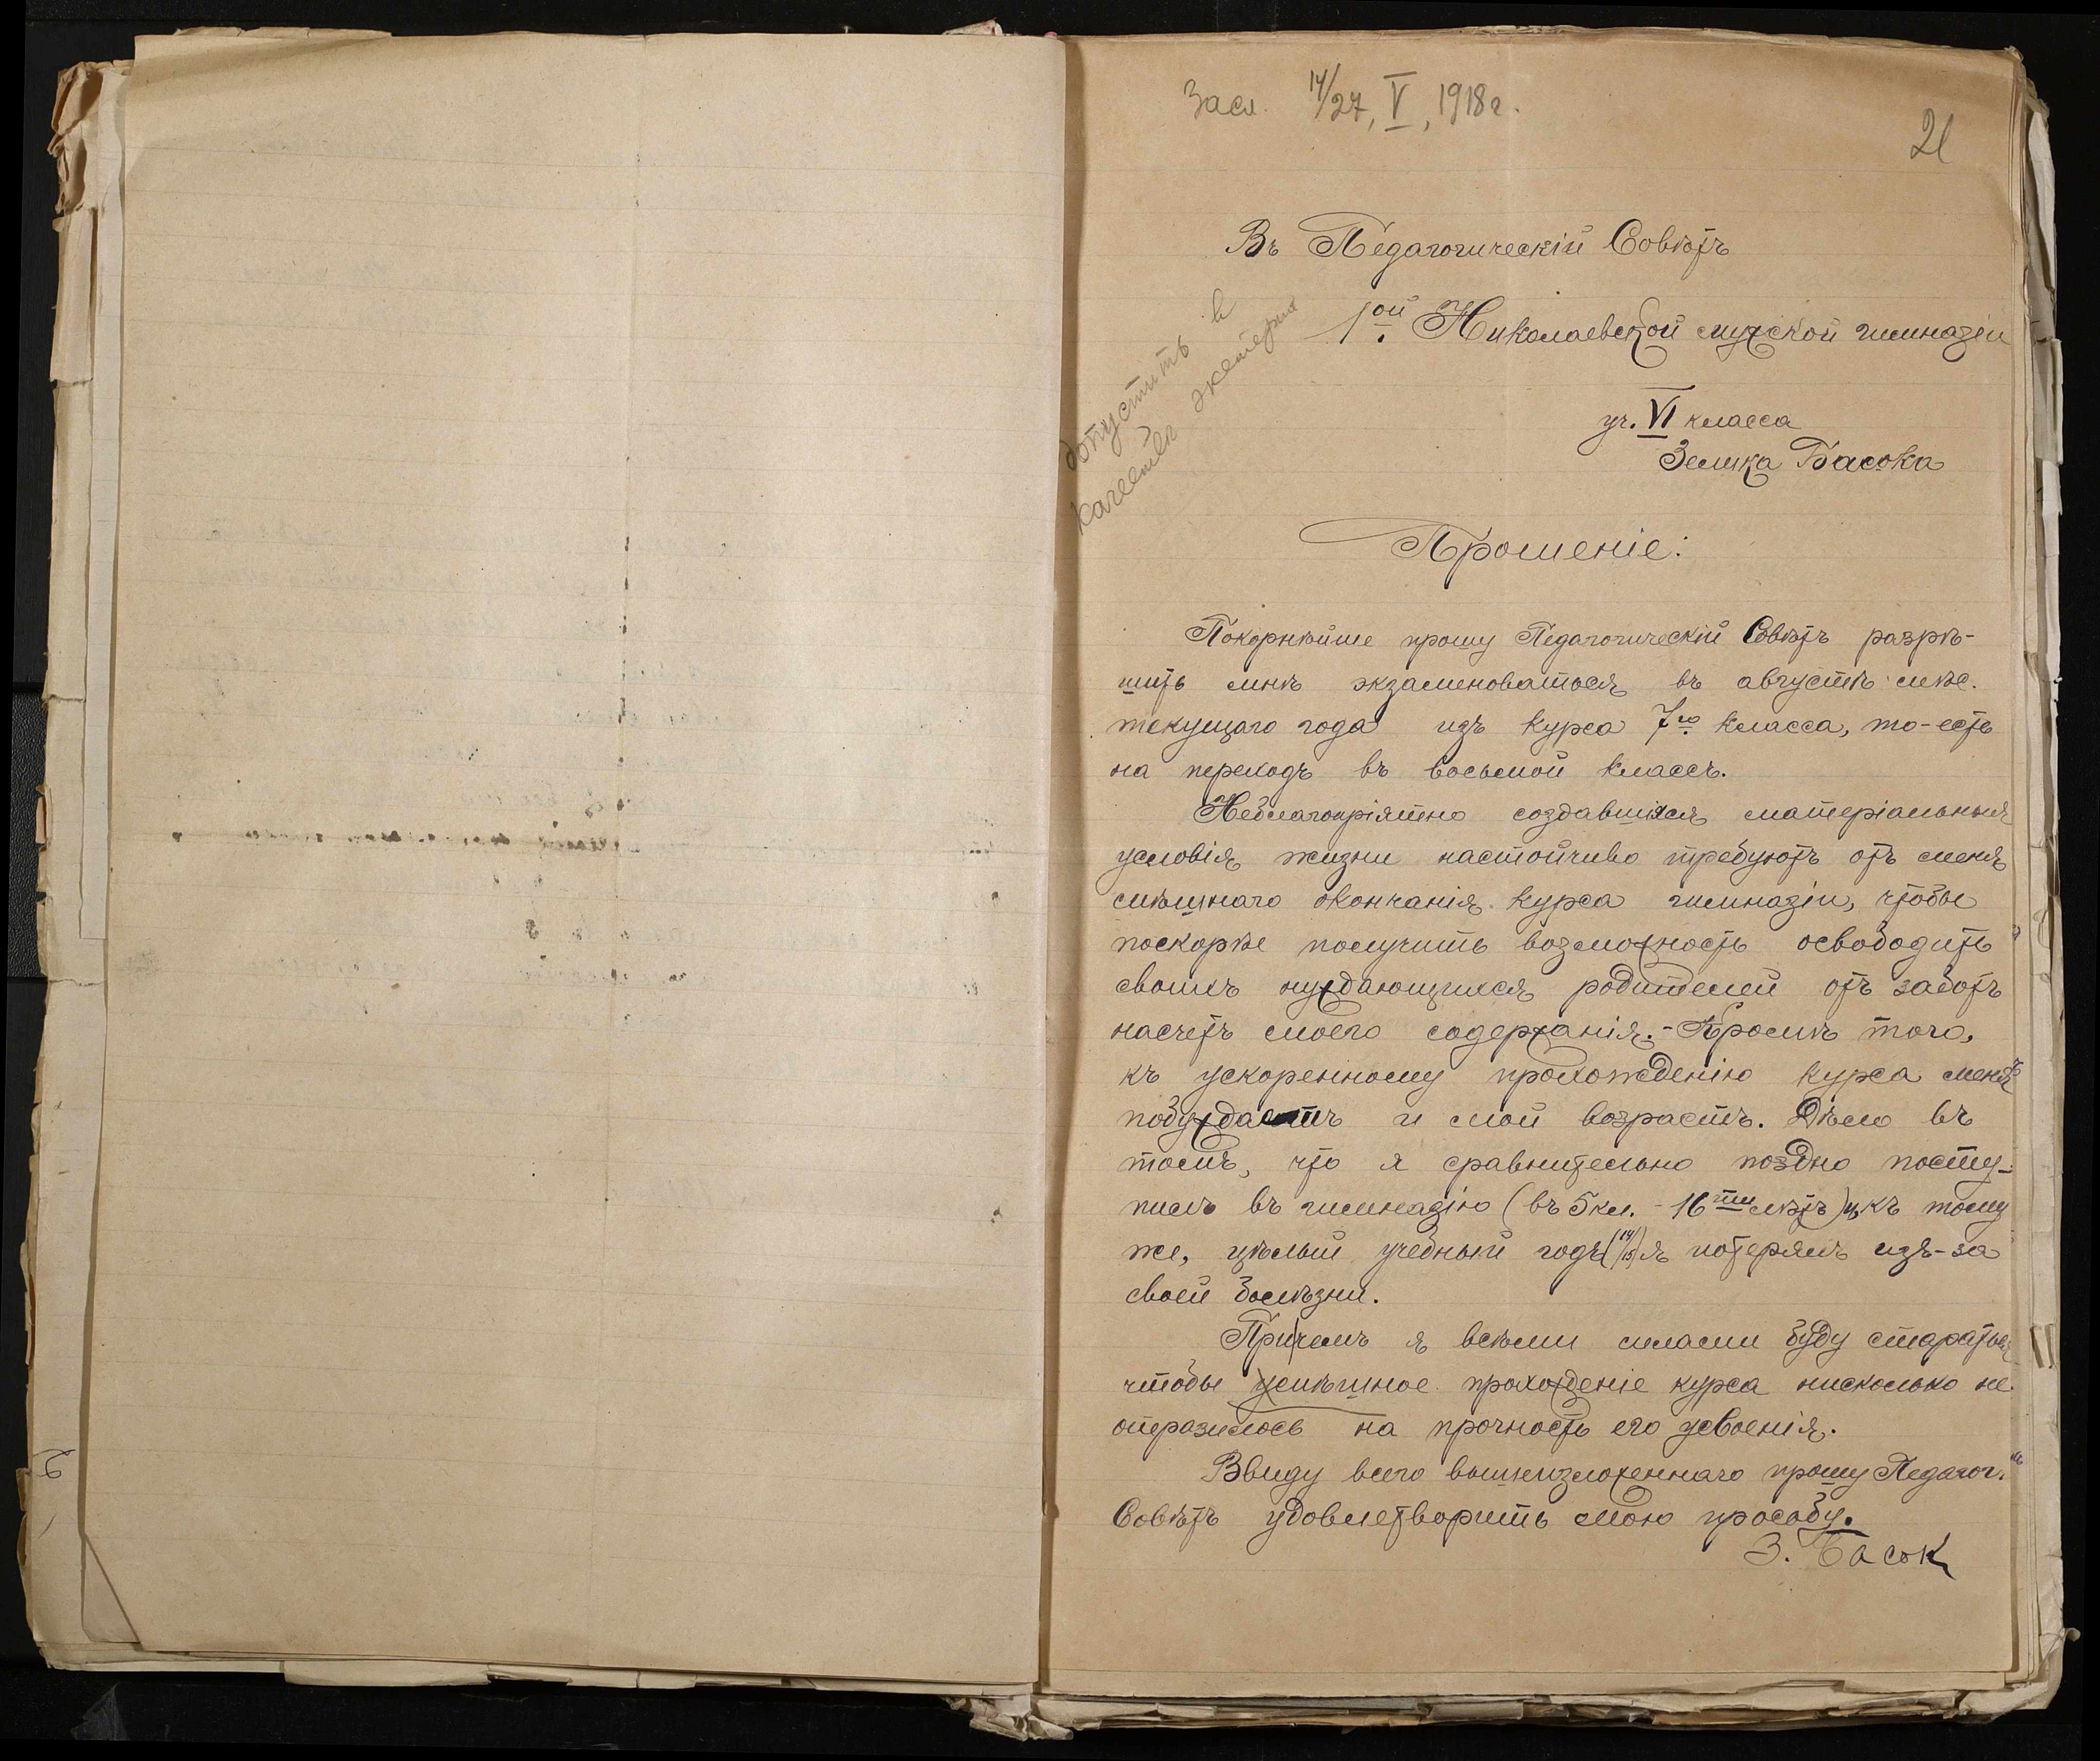 Засл. 14/27, V, 1918 г.
21
Въ Педагогическій Совѣтъ
1ой Николаевской мужской гимназіи
допустить в
качестве экстерна
уч. VI класса
Зелика Басока
Прошеніе:
Покорнѣйше прошу Педагогическій Совѣтъ разрѣ-
шить мнѣ экзаменоваться въ августѣ мѣс.
текущаго года изъ курса 7го класса, то-есть
на переходъ въ восьмой классъ.
Неблагопріятно создавшіяся матеріальныя
условія жизни настойчиво требуютъ отъ меня
спѣшнаго окончанія курса гимназіи, чтобы
поскорѣе получить возможность освободить
своихъ нуждающихся родителей отъ заботъ
насчетъ моего содержанія. - Кромѣ того,
къ ускоренному прохожденію курса меня
побуждаетъ и мой возрастъ. Дѣло въ
томъ, что я сравнительно поздно посту-
пилъ въ гимназію (въ 5 кл. - 16ти лѣтъ) и къ тому
же, цѣлый учебный годъ (14/15) я потерялъ изъ-за
своей болѣзни.
Причемъ я всѣми силами буду стараться
чтобы успѣшное прохожденіе курса нисколько не
отразилось на прочность его усвоенія.
Ввиду всего вышеизложеннаго прошу Педагог.
Совѣтъ удовлетворить мою просьбу.
З. Басок